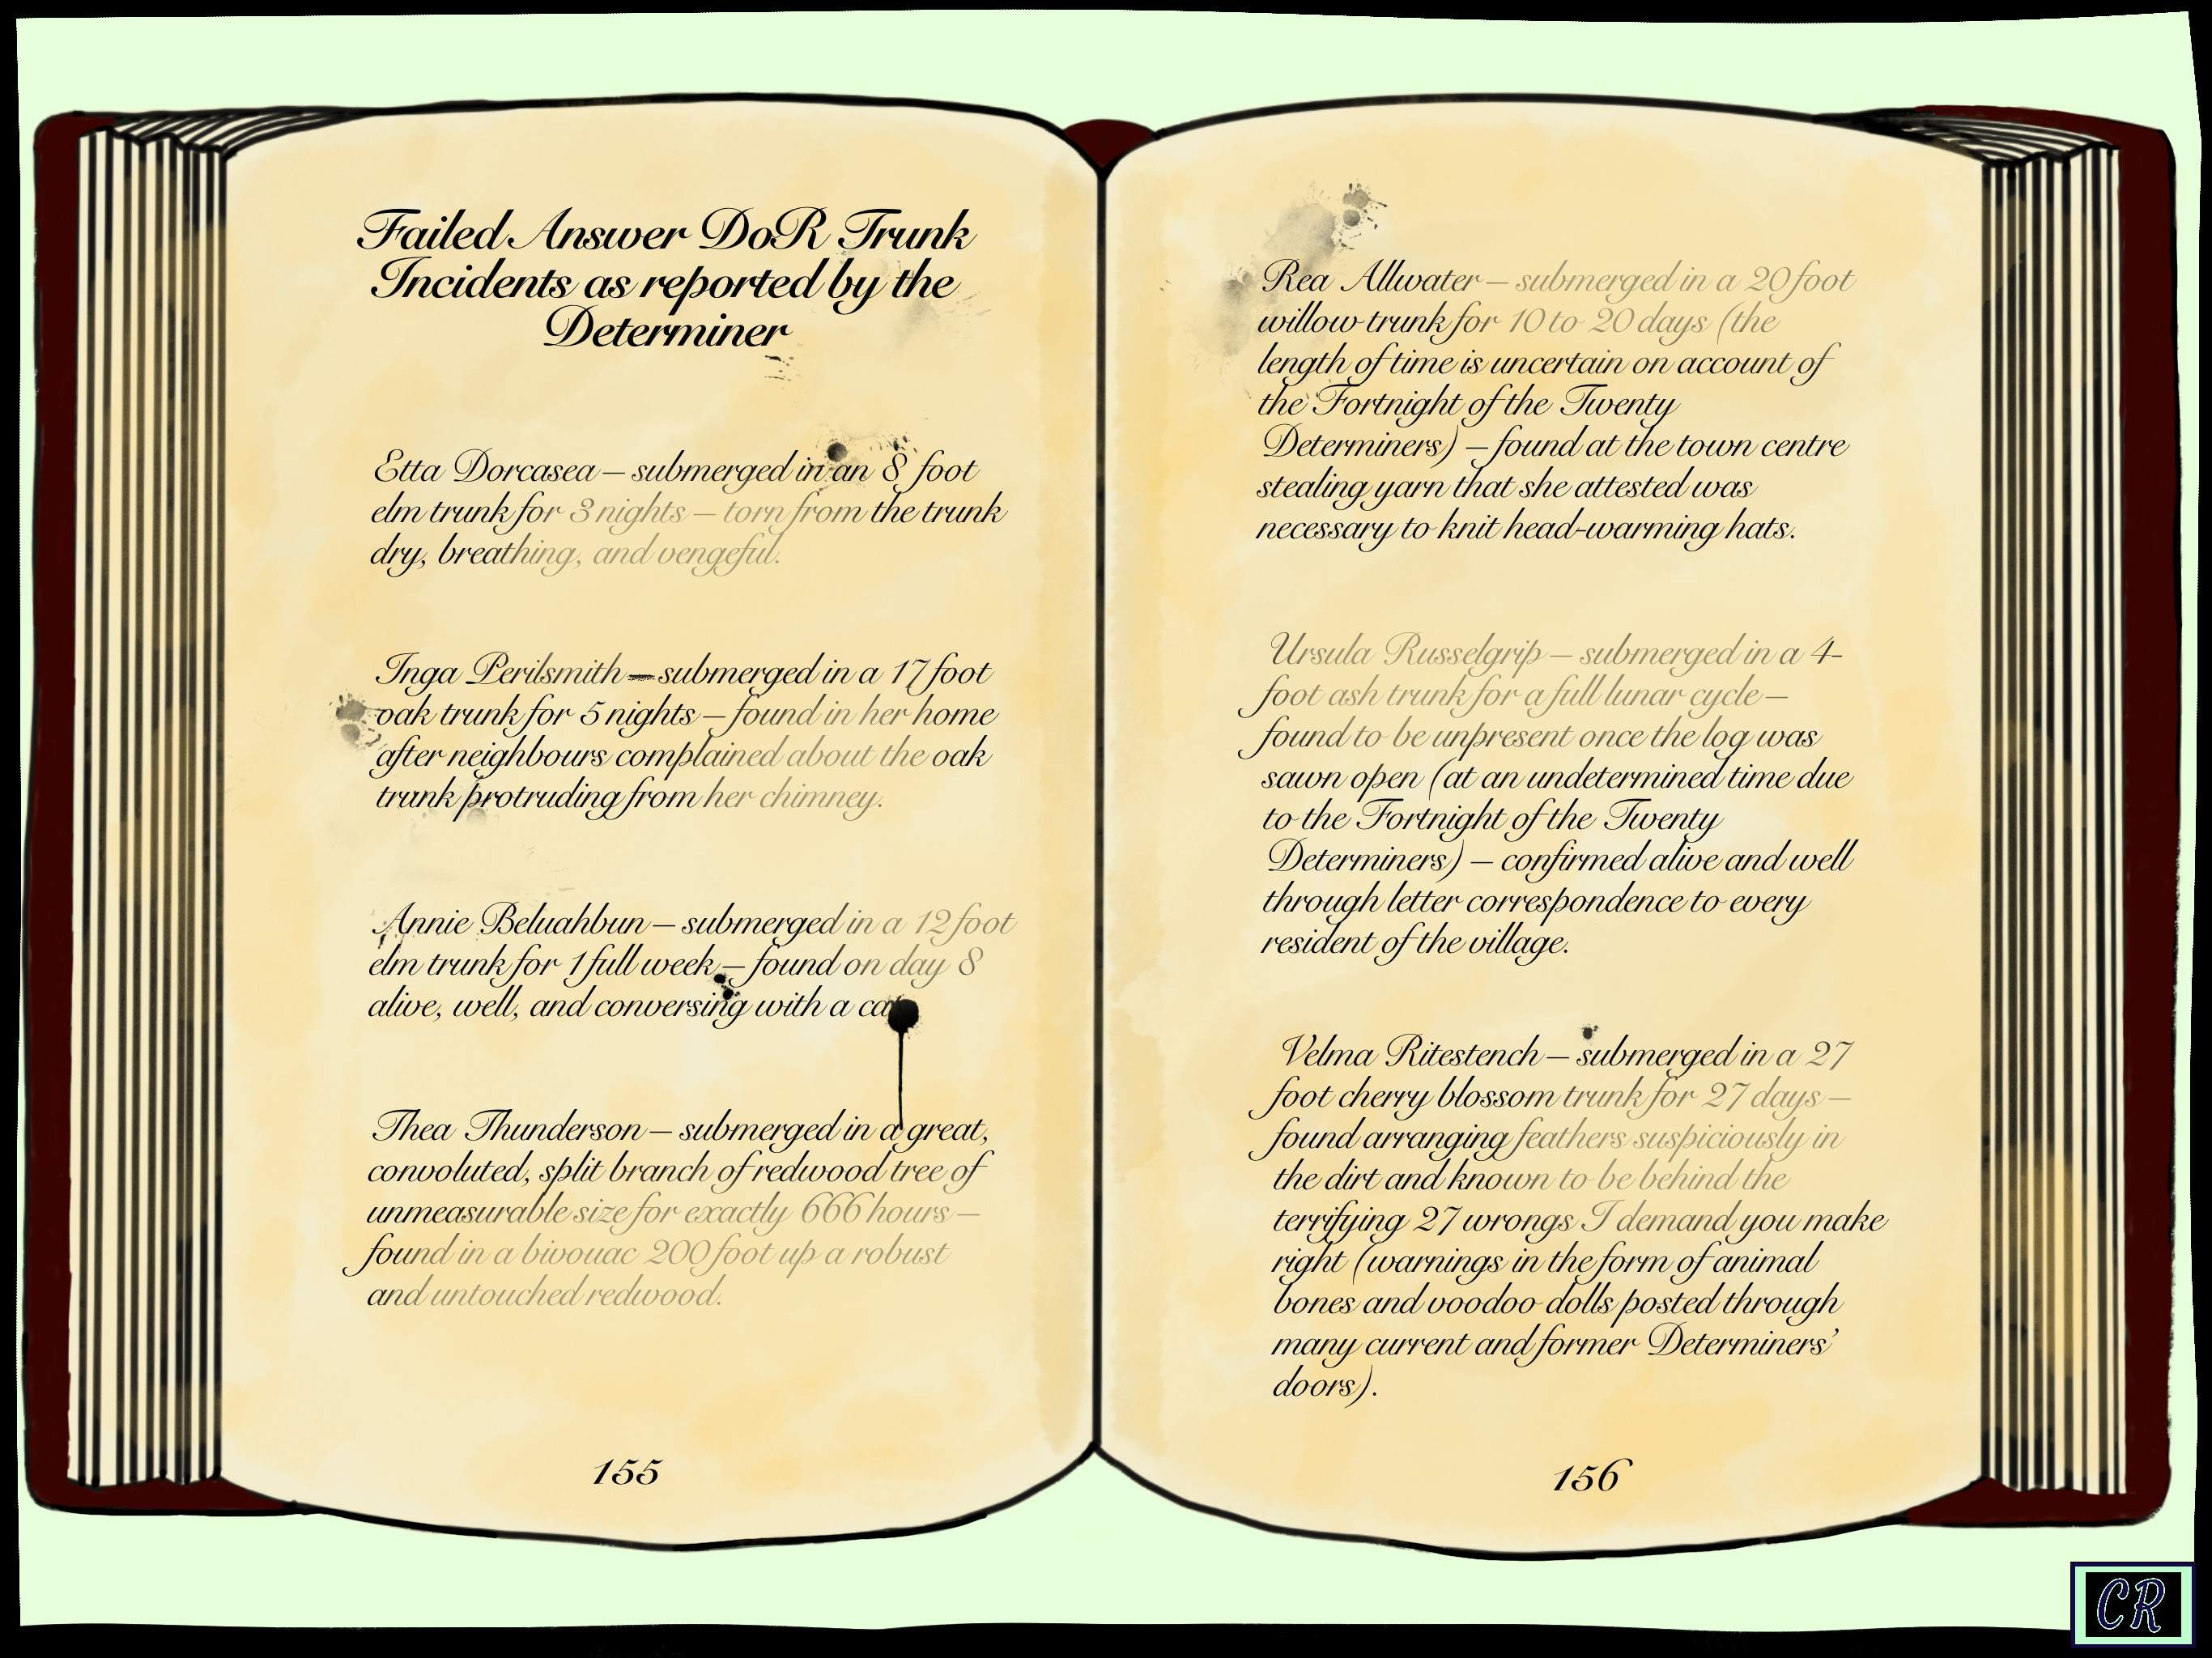 Failed Answer DoR Trunk
Incidents as reported by the
Determiner
Etta Dorcasea – submerged in an 8 foot
elm trunk for 3 nights – torn from the trunk
dry, breathing, and vengeful.
Inga Perilsmith – submerged in a 17 foot
oak trunk for 5 nights – found in her home
after neighbours complained about the oak
trunk protruding from her chimney.
Annie Beluahbun – submerged in a 12 foot
elm trunk for 1 full week – found on day 8
alive, well, and conversing with a
Thea Thunderson – submerged in a great,
convoluted, split branch of redwood tree of
unmeasurable size for exactly 666 hours –
found in a bivouac 200 foot up a robust
and untouched redwood.
155
Rea Allwater – submerged in a 20 foot
willow trunk for 10 to 20 days (the
length of time is uncertain on account of
the Fortnight of the Twenty
Determiners) – found at the town centre
stealing yarn that she attested was
necessary to knit head-warming hats.
Ursula Russelgrip – submerged in a 4-
foot ash trunk for a full lunar cycle –
found to be unpresent once the log was
sawn open (at an undetermined time due
to the Fortnight of the Twenty
Determiners) – confirmed alive and well
through letter correspondence to every
resident of the village.
Velma Ritestench – submerged in a 27
foot cherry blossom trunk for 27 days –
found arranging feathers suspiciously in
the dirt and known to be behind the
terrifying 27 wrongs I demand you make
right (warnings in the form of animal
bones and voodoo dolls posted through
many current and former Determiners'
doors).
156
CR